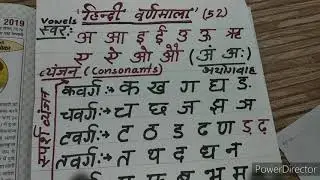 "हिन्दी वर्णमाला" (52)
Vowels
स्वर:- अ आ इ ई उ ऊ ऋ
ए ऐ ओ औ (अं अः)
व्यंजन (Consonants) अयोगवाह
स्पर्श व्यंजन
कवर्ग:→ क ख ग घ ङ
चवर्ग:→ च छ ज झ ञ
टवर्ग:→ ट ठ ड ढ ण ड़ ढ़
तवर्ग:→ त थ द ध न
प फ ब भ म
2019
PowerDirector